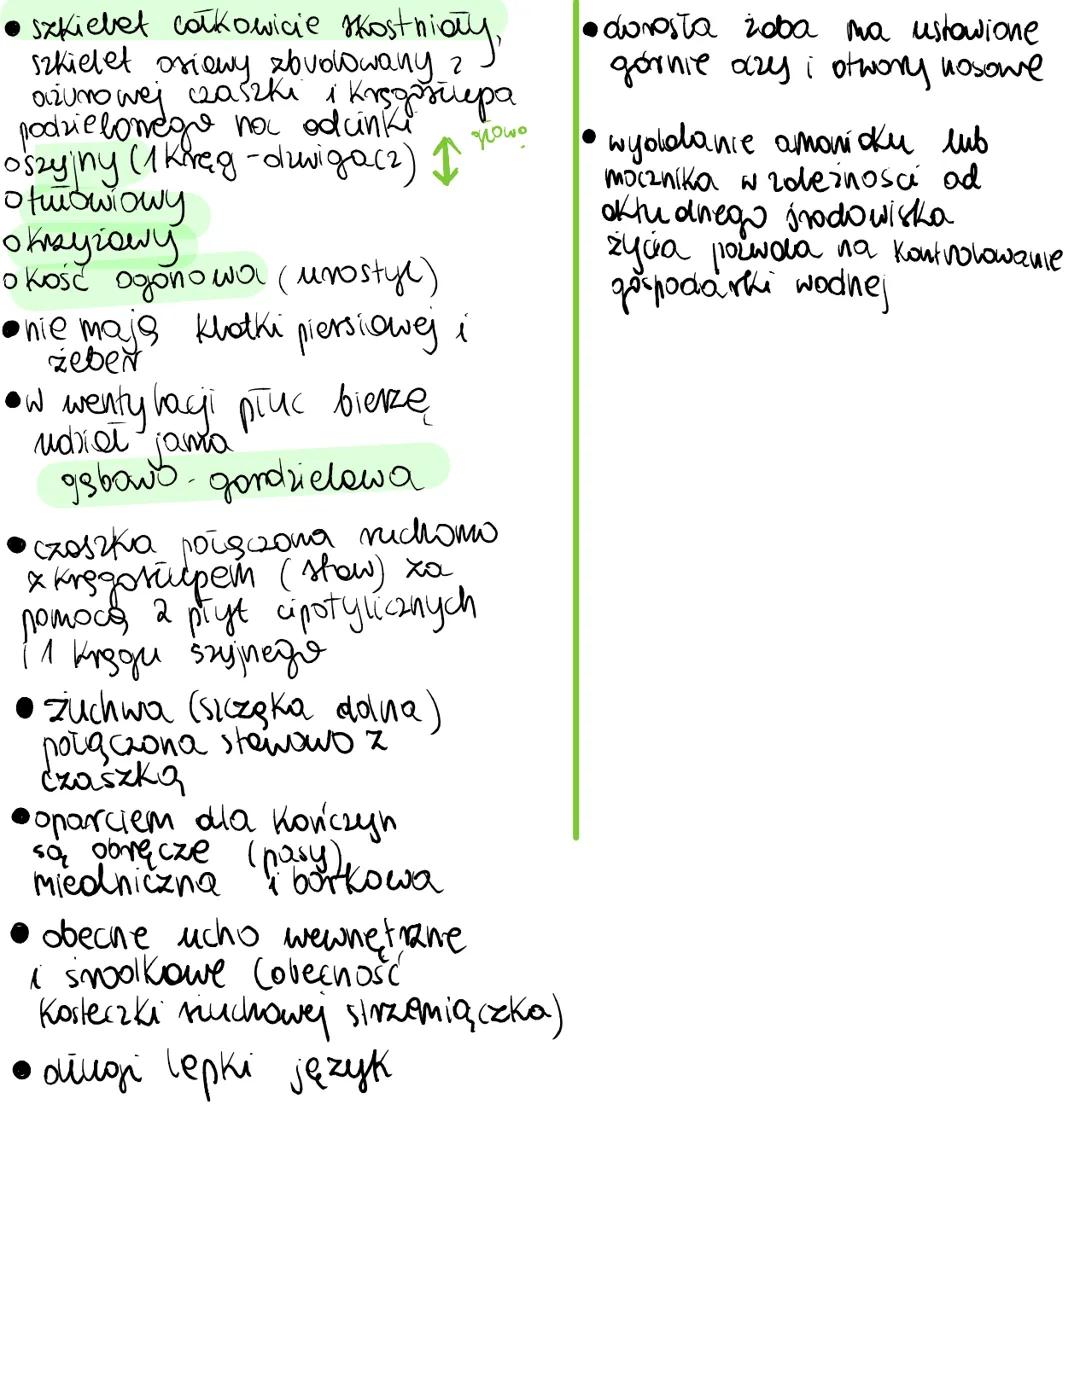 • szkielet całkowicie skostniały,
szkielet osiowy zbudowany z
ażurowej czaszki i kręgosłupa
podzielonego na odcinki
o szyjny (1 kręg - dźwigacz) ↕ głowa
o tułowiowy
o krzyżowy
o kość ogonowa (urostyl)
• nie mają klatki piersiowej i
żeber
• w wentylacji płuc bierze
udział jama
gębowo - gardzielowa
• czaszka połączona ruchomo
z kręgosłupem (staw) za
pomocą 2 płyt cipotylicznych
i 1 kręgu szyjnego
• żuchwa (szczęka dolna)
połączona stawowo z
czaszką
• oparciem dla kończyn
są obręcze (pasy)
miedniczna i barkowa
• obecne ucho wewnętrzne
i środkowe (obecność
kosteczki słuchowej strzemiączka)
• długi lepki język
• dorosła żaba ma ustawione
górnie oczy i otwory nosowe
• wydalanie amoniaku lub
mocznika w zależności od
aktualnego środowiska
życia pozwala na kontrolowanie
gospodarki wodnej